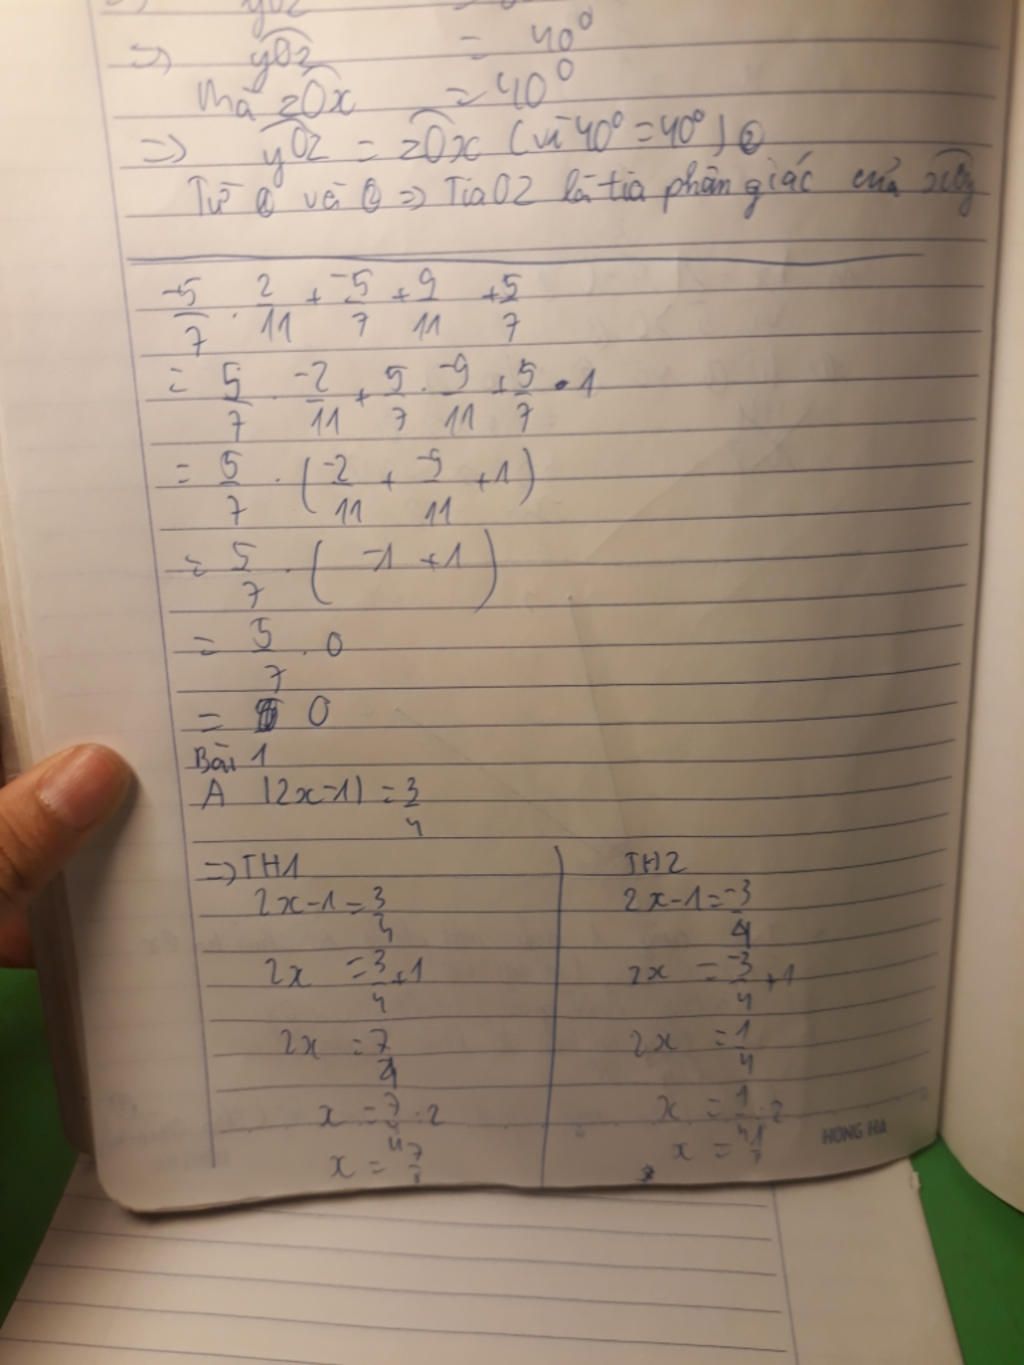 => yOz = 40⁰
Mà zOx = 40⁰
=> yOz = zOx (vì 40⁰ = 40⁰) ②
Từ ① và ② => Tia Oz là tia phân giác của xOy
-5/7 . 2/11 + -5/7 + 9/11 + 5/7
= 5/7 . -2/11 + 5/7 . -9/11 + 5/7 . 1
= 5/7 . (-2/11 + -9/11 + 1)
= 5/7 . ( -1 + 1 )
= 5/7 . 0
= 0
Bài 1
A |2x-1| = 3/4
=> TH1 TH2
2x-1 = 3/4 2x-1 = -3/4
2x = 3/4 + 1 2x = -3/4 + 1
2x = 7/4 2x = 1/4
x = 7/4 . 2 x = 1/4 . 2
x = 7/8 x =
HONG HA